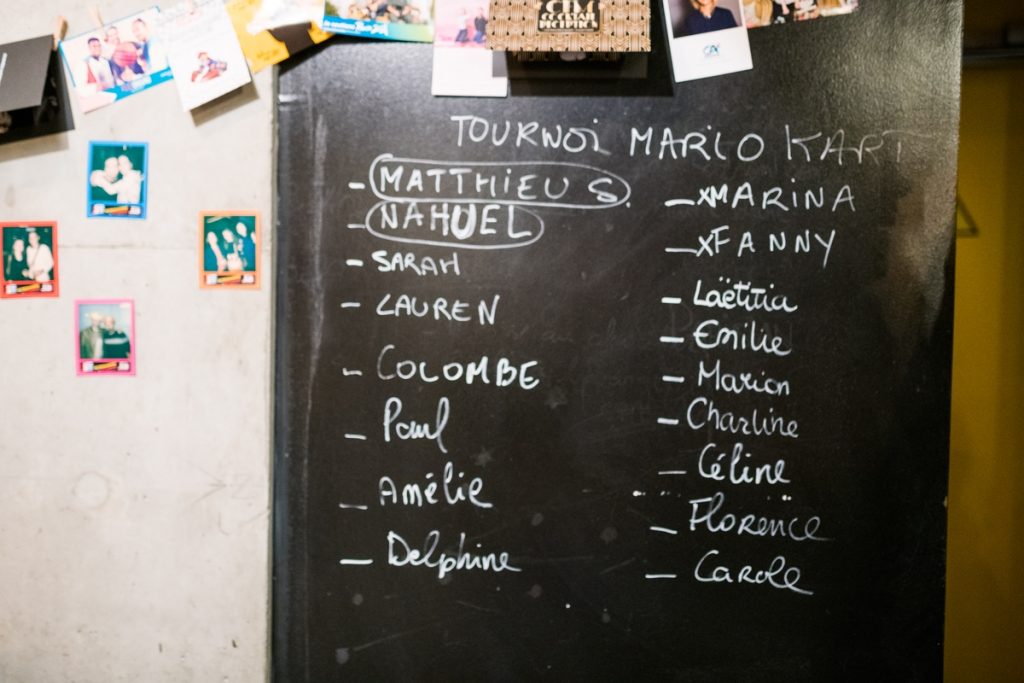 COCKTAIL
TOURNOI MARIO KART
- MATTHIEU S.
- NAHUEL
- SARAH
- LAUREN
- COLOMBE
- Paul
- Amélie
- Delphine
- xMARINA
- xFANNY
- Laëtitia
- Emilie
- Marion
- Charline
- Céline
- Florence
- Carole